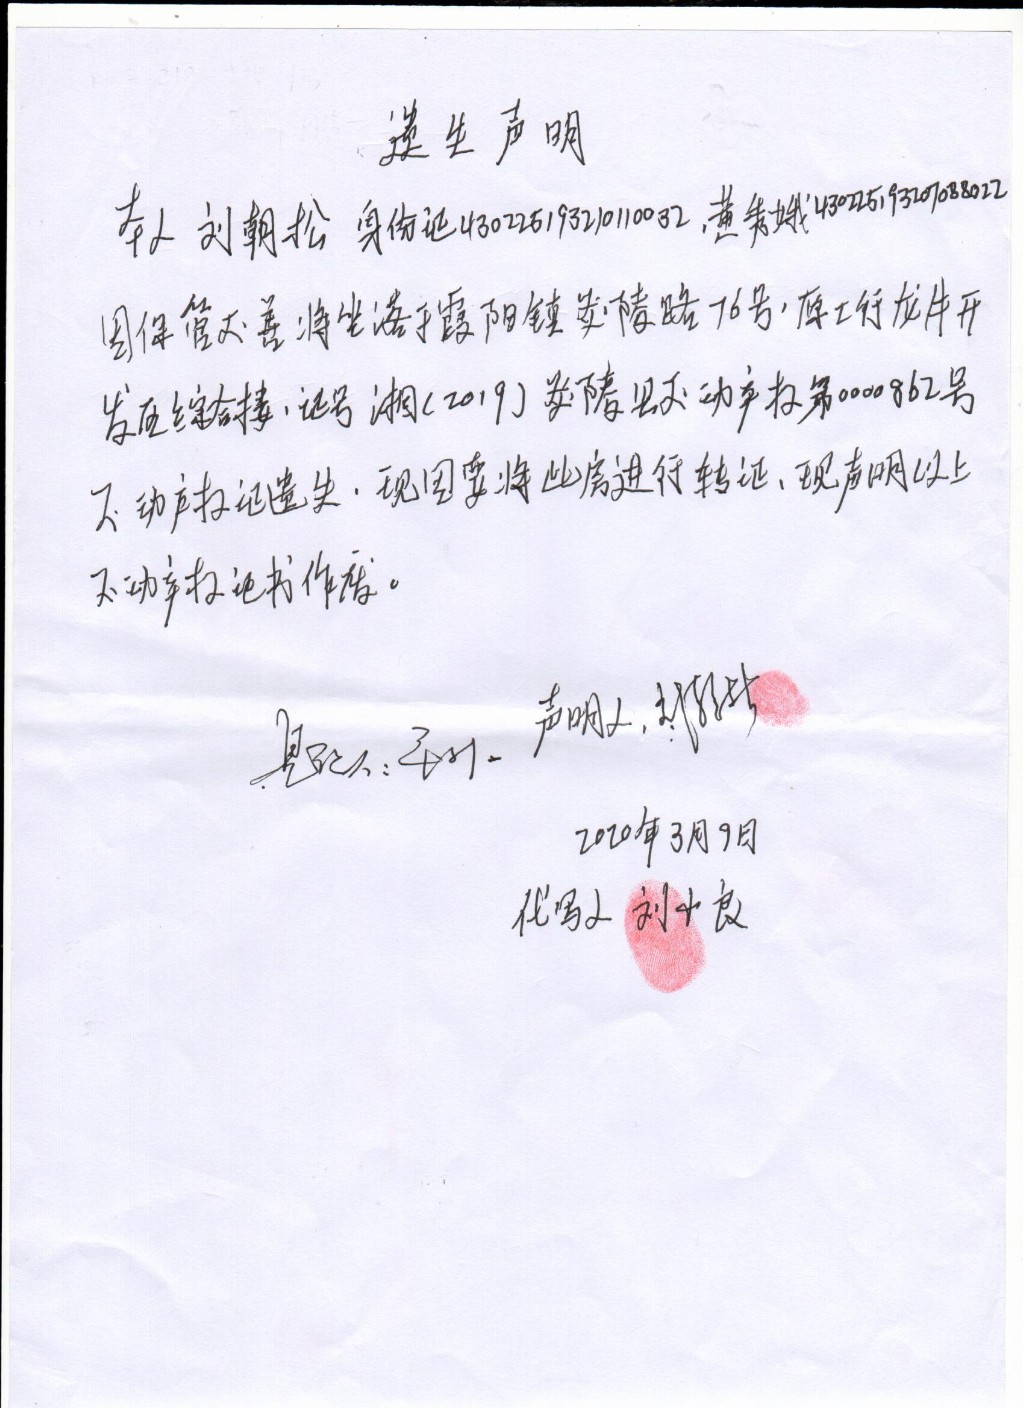 遗失声明
本人刘朝松身份证430225193210110032,黄秀娥430225193207088022
因保管不善将坐落于霞阳镇炎陵路76号,原工行龙牛开
发区综合楼,证号湘(2019)炎陵县不动产权第0000862号
不动产权证遗失,现因要将此房进行转证、现声明以上
不动产权证书作废。
声明人,刘朝松
2020年3月9日
代写人 刘小良